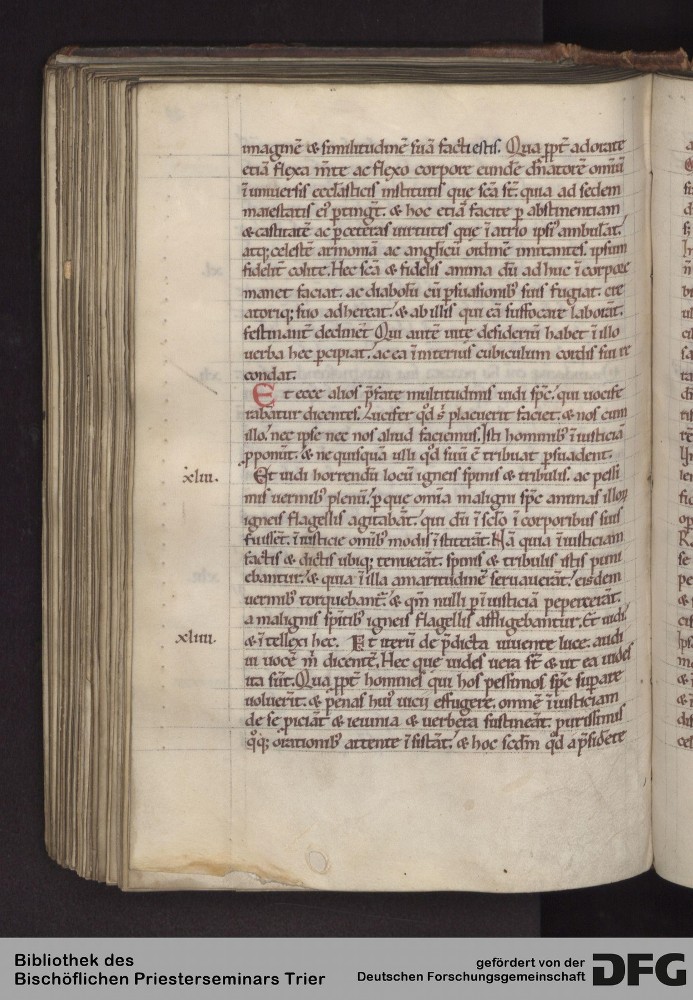 imaginē & similitudinē suā facti estis. Qua ꝓpt̄ adorate
etiā flexa m̄te ac flexo corpore eundē dn̄atorē omniū
ī uniuersis ecclasticis institutis que scā st̄. quia ad sedem
maiestatis ei᾽ ꝑtingt̄. & hoc etiā facite ꝑ abstinentiam
& castitatē ac ꝑ ceteras uirtutes que ī atrio ipsi᾽ ambulāt.
atq; celestē armoniā ac anglicū ordinē imitantes. ipsum
fidelit̄ colite. Hec scā & fidelis anima dū ad huc ī corpore
manet faciat. ac diabolū cū ꝑsuasionib᾽ suis fugiat. cre
atoriq; suo adhereat. & ab illis qui eā suffocare laborāt.
festinant̄ declinet. Qui autē uite desideriū habet ī illo
uerba hec ꝑcipiat. ac ea ī interius cubiculum cordis sui re
condat.
Et ecce alios p̄fate multitudinis uidi sp̄c. qui uocife
rabātur dicentes. Lucifer qd̄ s᾽ placuerit faciet. & nos cum
illo. nec ipse nec nos aliud faciemus. Isti hominib᾽ ī iusticiā
ꝓponūt. & ne quisquā ulli qd̄ suū ē tribuat ꝑsuadent.
xliii. Et uidi horrendū locū igneis spinis & tribulis. ac pessi
mis uermib᾽ plenū. ꝑ que omīa maligni sp̄c animas illoꝝ
igneis flagellis agitabāt. qui dū ī sclo ī corporibus suis
fuisset. ī iusticie omib᾽ modis ī stiterāt. Nā quia ī iusticiam
factis & dictis ubiq; tenuerāt. spinis & tribulis istis puni
ebantur. & quia ī illa amaritudinē seruauerāt. eisdem
uermib᾽ torquebant᾽. & qm̄ nulli ꝑ ī iusticiā pepercerāt.
a malignis sp̄itib᾽ igneis flagellis affligebantur. Et uidi.
xliiii. & ī tellexi hec. Et iterū de p̄dicta uiuente luce. audi
ui uocē m̄ dicentē. Hec que uides uera st̄ & ut ea uides
ita sūt. Qua ꝓpt̄ homines qui hos pessimos sp̄c supare
uoluerīt. & penas hui᾽ uicii effugere. omnē ī iusticiam
de se ꝓiciāt & ieiunia & uerbera sustineāt. purissimis
qq; orationib᾽ attente ī sistāt. & hoc scdm̄ qd̄ a p̄sidēte
Bibliothek des
Bischöflichen Priesterseminars Trier
gefördert von der
Deutschen Forschungsgemeinschaft
DFG